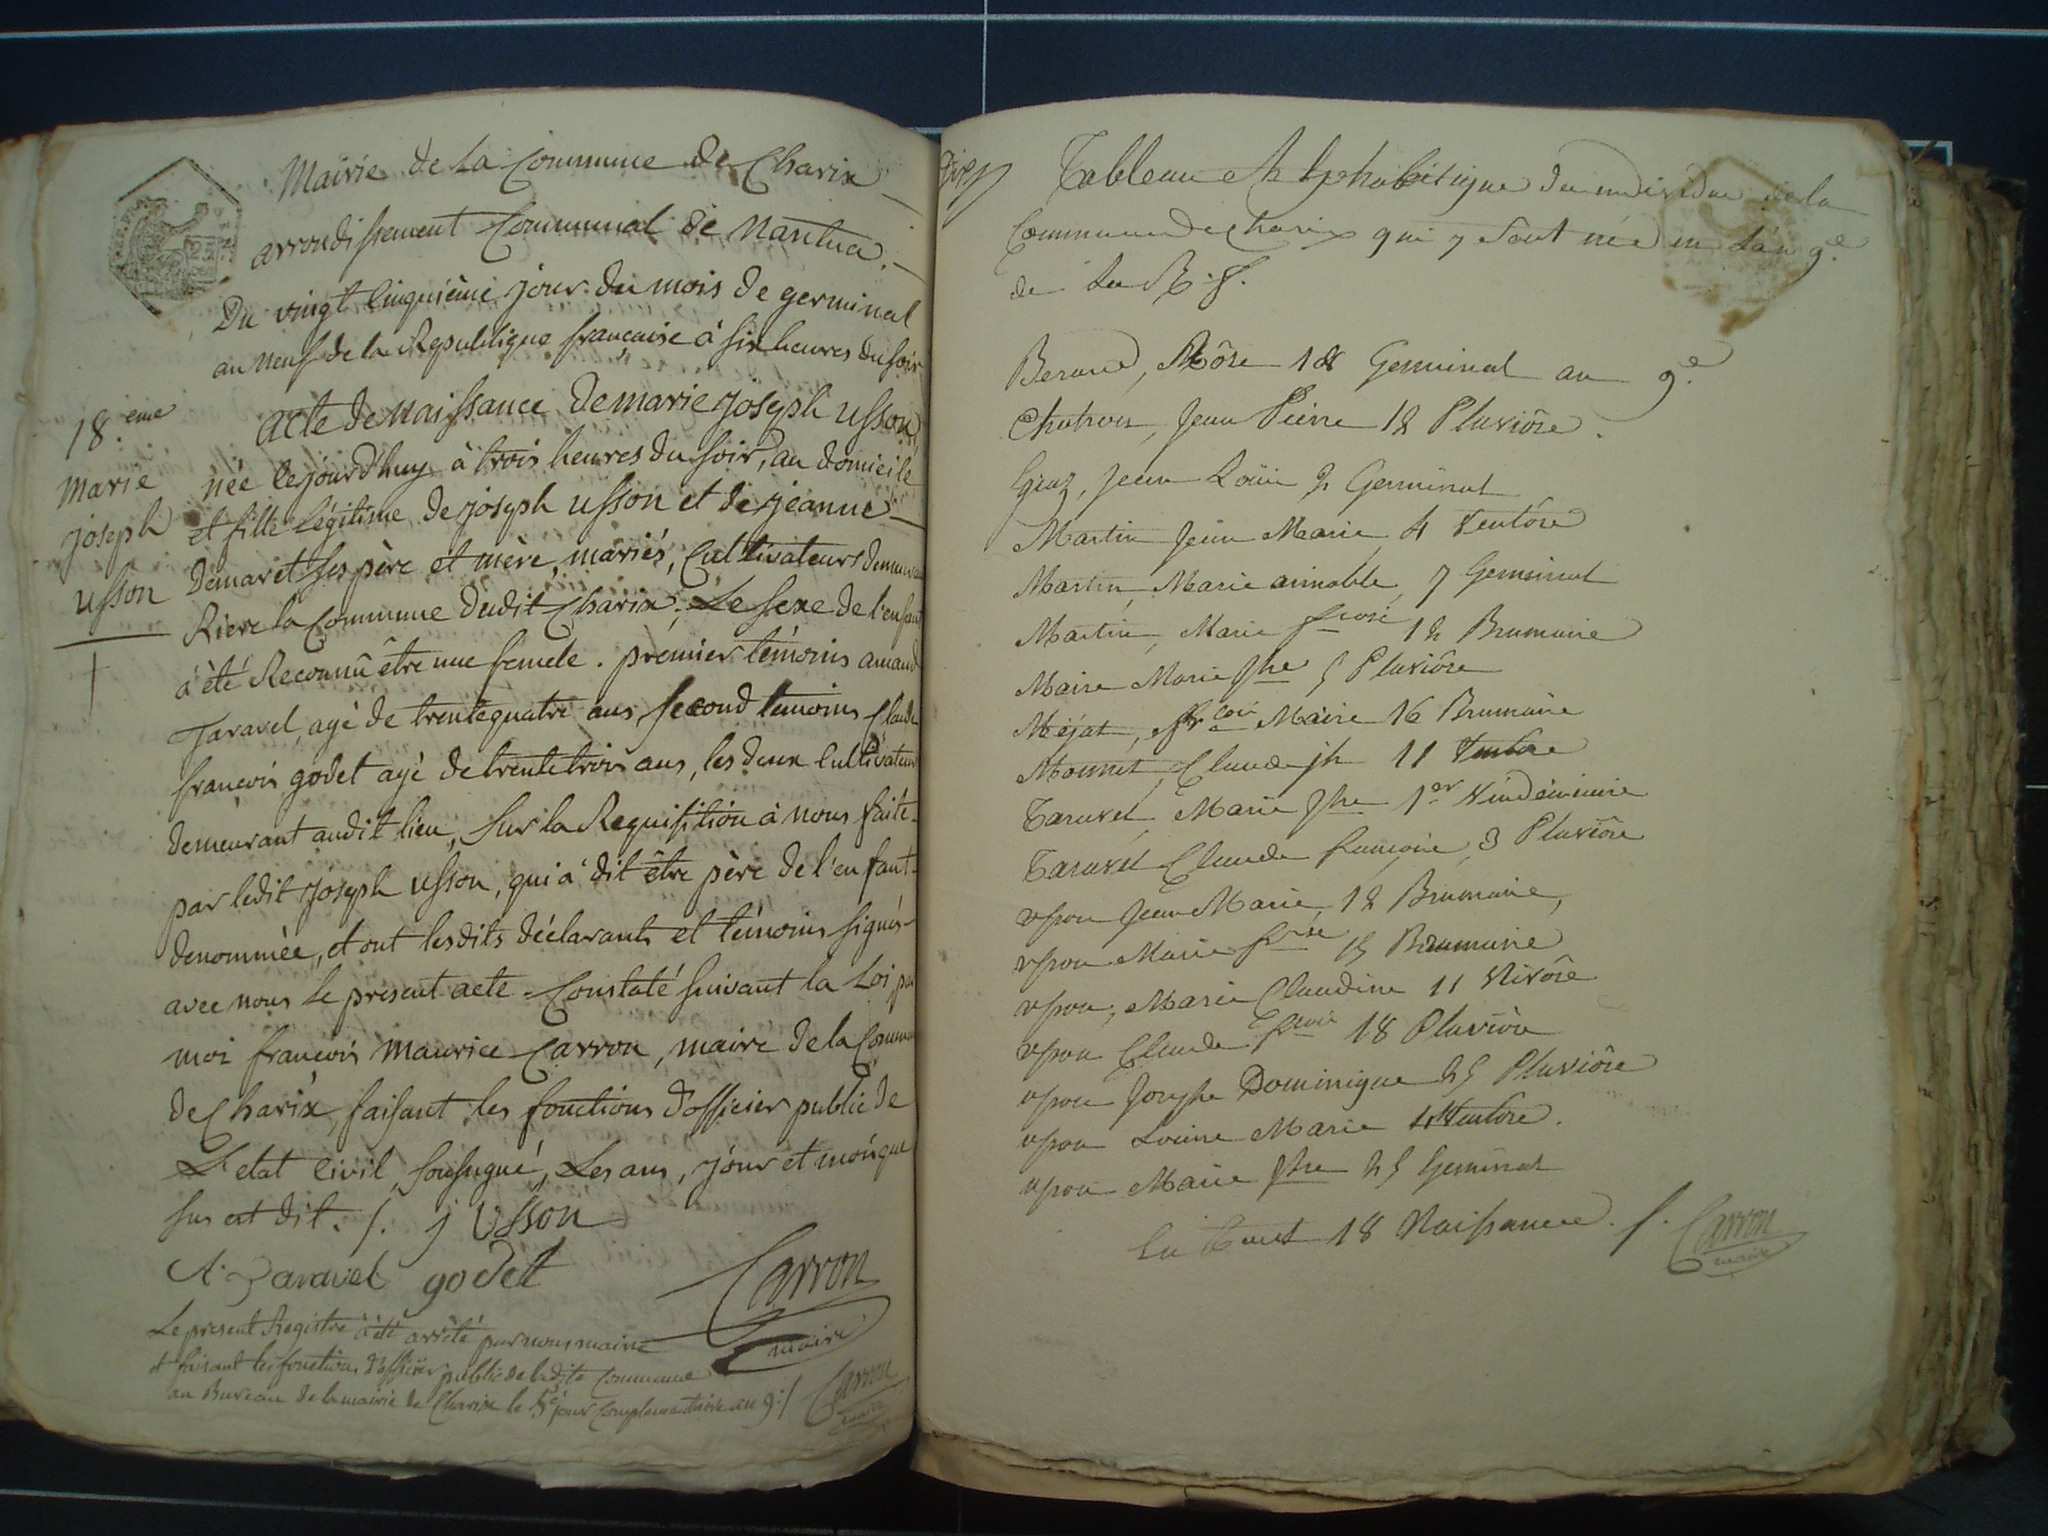 Mairie de La Commune de Charix
arrondissement Communal de Nantua.
Du vingt Cinquième jour du mois de germinal
an neuf de la Republique francaise à six heures du soir
18.eme
Marie
joseph
usson
acte de naissance de marie joseph usson
née cejourd'huy à trois heures du soir, au domicile
et fille légitime de joseph usson et de jeanne
Demaret ses père et mère, mariés, Cultivateurs demeurant
Riere la Commune dudit Charix; Le sexe de l'enfant
à été Reconnû être une femele. premier témoins amand
Taravel, agé de trentequatre ans, second temoins Claude
francois godet agé de trentetrois ans, les deux Cultivateurs
demeurant audit lieu, Sur la Requisition à nous faite
par ledit joseph usson, qui à dit être père de l'enfant
denommée, et ont lesdits déclarants et témoins signés
avec nous Le present acte. Constaté suivant la Loi par
moi francois Maurice Carron, maire de la Commune
de Charix, faisant les fonctions d'officier public de
L'etat Civil, soussigné, Les ans, jour et mois que
sus est dit. /. j Usson
A. Taravel godet
Carron
maire
Le present Registre à été arrêté par nous maire
et faisant les fonctions d'officier public de ladite Commune
au Bureau de la mairie de Charix le 5e jour Complementaire an 9 ./.
Carron
maire
Tableau Alphabétique du individue de la
Commune de Charix qui y sont née en L'an 9.e
de La R. f.
Berard, Rôse 18 Germinal an 9.e
Chatron, Jean Pierre 12 Pluviôse.
Graz, Jean Loüis 2 Germinal
Martin Jean Marie 4 Ventôse
Martin, Marie aimable, 7 Germinal
Martin, Marie fcoise 12 Brumaire
Maire Marie Jhe 5 Pluviôse
Méjat, frcois Marie 16 Brumaire
Monnet, Claude jh 11 Ventose
Taravel, Marie Jhe 1er Vindémiaire
Taravel Claude françoise 3 Pluviôse
usson Jean Marie, 12 Brumaire,
usson Marie fcoise 15 Brumaire
usson, Marie Claudine 11 Nivôse
usson Claude fcois 18 Pluviôse
usson Josephe Dominique 25 Pluviôse
usson Louise Marie 4 Ventôse.
usson Marie Jhe 25 Germinal
En tout 18 Naissance. /.
Carron
maire